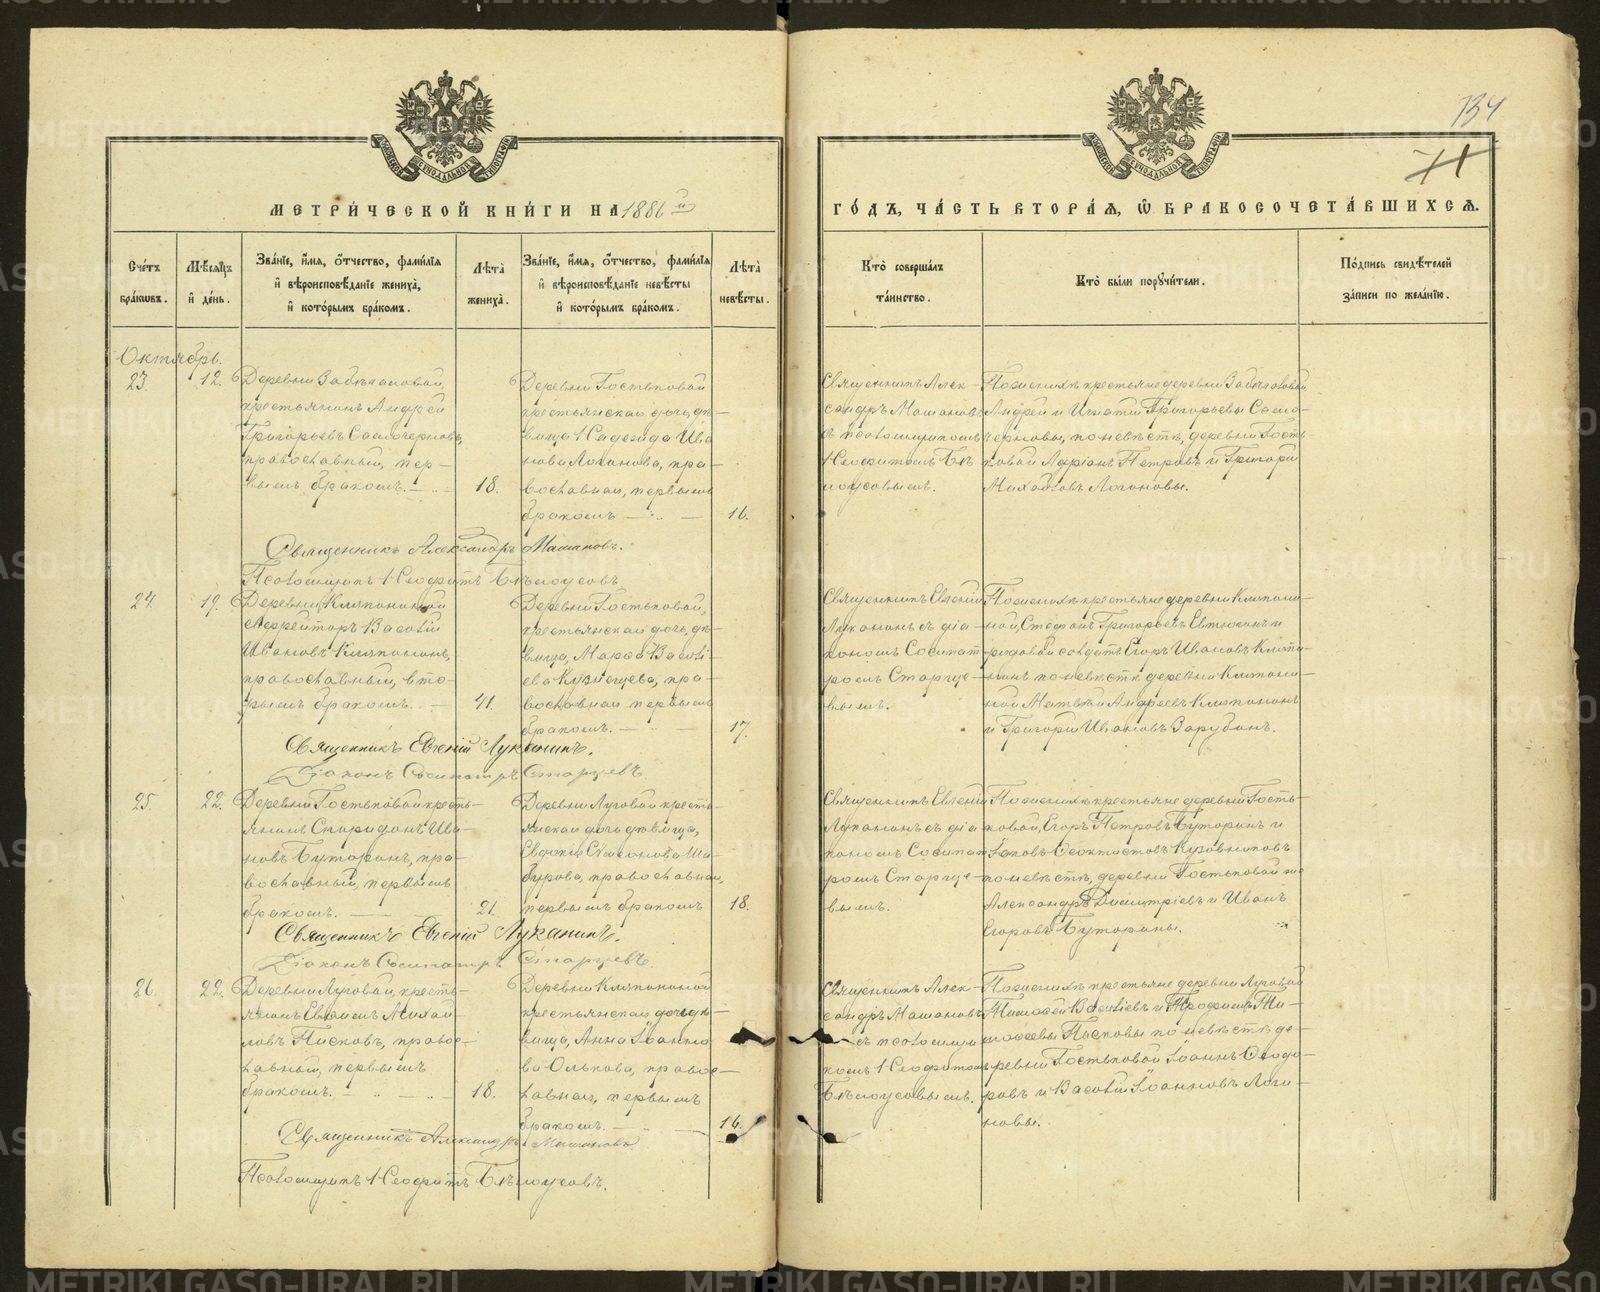 134
11
МЕТРИ́ЧЕСКОЙ КНИ́ГИ НА 1886 й
ГО́ДЪ, ЧА́СТЬ ВТОРА́Я, Ѡ БРАКОСОЧЕТА́ВШИХСЯ.
Сче́тъ бра́ковъ.
Мѣ́сяцъ и де́нь.
Зва́нїе, и́мя, о́тчество, фами́лїя и вѣроисповѣ́данїе жениха̀, и кото́рымъ бра́комъ.
Лѣта̀ жениха̀.
Зва́нїе, и́мя, о́тчество, фами́лїя и вѣроисповѣ́данїе невѣ́сты и кото́рымъ бра́комъ.
Лѣта̀ невѣ́сты.
Кто̀ соверша́лъ та́инство.
Кто̀ бы́ли поручи́тели.
По́дпись свидѣ́телей за́писи по жела́нїю.
Октябрь.
23.
12.
Деревни
крестьянинъ Андрей
Григорьевъ Самочерновъ,
православный, пер-
вымъ бракомъ.
18.
Деревни Гостьковой
крестьянская дочь, дѣ-
вица Надежда Ива
нова Логинова, пра-
вославная, первымъ
бракомъ
16.
Священникъ Алек-
сандръ Машановъ
съ псаломщикомъ
Неофитомъ Бѣ
лоусовымъ.
По женихѣ крестьяне деревни
Андрей и Игнатій Григорьевы Само-
черновы, по невѣстѣ, деревни Гость-
ковой Адріанъ Петровъ и Григорій
Михайловъ Логиновы.
Священникъ Александръ Машановъ.
Псаломщикъ Неофитъ Бѣлоусовъ
24.
19.
Деревни Кляпининой
Ефрейторъ Василій
Ивановъ Кляпининъ,
православный, вто-
рымъ бракомъ.
41.
Деревни Гостьковой,
крестьянская дочь, дѣ-
вица, Марѳа Васи́лі-
ева Кузнецова, пра-
вославная первымъ
бракомъ.
17.
Священникъ Евгеній
Луканинъ съ діа
кономъ Сосипат
ромъ Старце-
вымъ.
По женихѣ крестьяне деревни Кляпини-
ной, Стефанъ Григорьевъ Евтюгинъ и
рядовой солдатъ Егоръ Ивановъ Кляпи-
нинъ по невѣстѣ деревни Кляпини-
ной Матвѣй Андреевъ Кляпининъ
и Григорій Ивановъ Зарубинъ.
Священникъ Евгеній Луканинъ.
Діаконъ Сосипатръ Старцевъ
25.
22.
Деревни Гостьковой кресть-
янинъ Спиридонъ Ива-
новъ Буторинъ, пра-
вославный, первымъ
бракомъ.
21.
Деревни Луговой кресть-
янская дочь дѣвица,
Евдокія Симонова Ша-
бурова, православная,
первымъ бракомъ
18.
Священникъ Евгеній
Луканинъ съ діа
кономъ Сосипат
ромъ Старце-
вымъ.
По женихѣ крестьяне деревни Гость-
ковой, Егоръ Петровъ Буторинъ и
Іаковъ Ѳеоктистовъ Кузовниковъ
по невѣстѣ, деревни Гостьковой же
Александръ Димитріевъ и Иванъ
Егоровъ Буторины.
Священникъ Евгеній Луканинъ.
Діаконъ Сосипатръ Старцевъ.
26.
22.
Деревни Луговой, кресть-
янинъ Ефимъ Михай
ловъ Пысковъ, правос-
лавный, первымъ
бракомъ.
18.
Деревни Кляпининой
крестьянская дочь дѣ-
вица, Анна Іоанно
ва Олькова, правос-
лавная, первымъ
бракомъ.
16.
Священникъ Алек-
сандръ Машановъ
съ псаломщи
комъ Неофитомъ
Бѣлоусовымъ.
По женихѣ крестьяне деревни Луговой
Тимоѳей Васильевъ и Трофимъ Ти-
моѳеевы Пысковы по невѣстѣ де-
ревни Гостьковой Іоаннъ Ѳеодо-
ровъ и Василій Іоанновъ Логи-
новы.
Священникъ Александръ Машановъ
Псаломщикъ Неофитъ Бѣлоусовъ.
METRIKI.GASO-URAL.RU